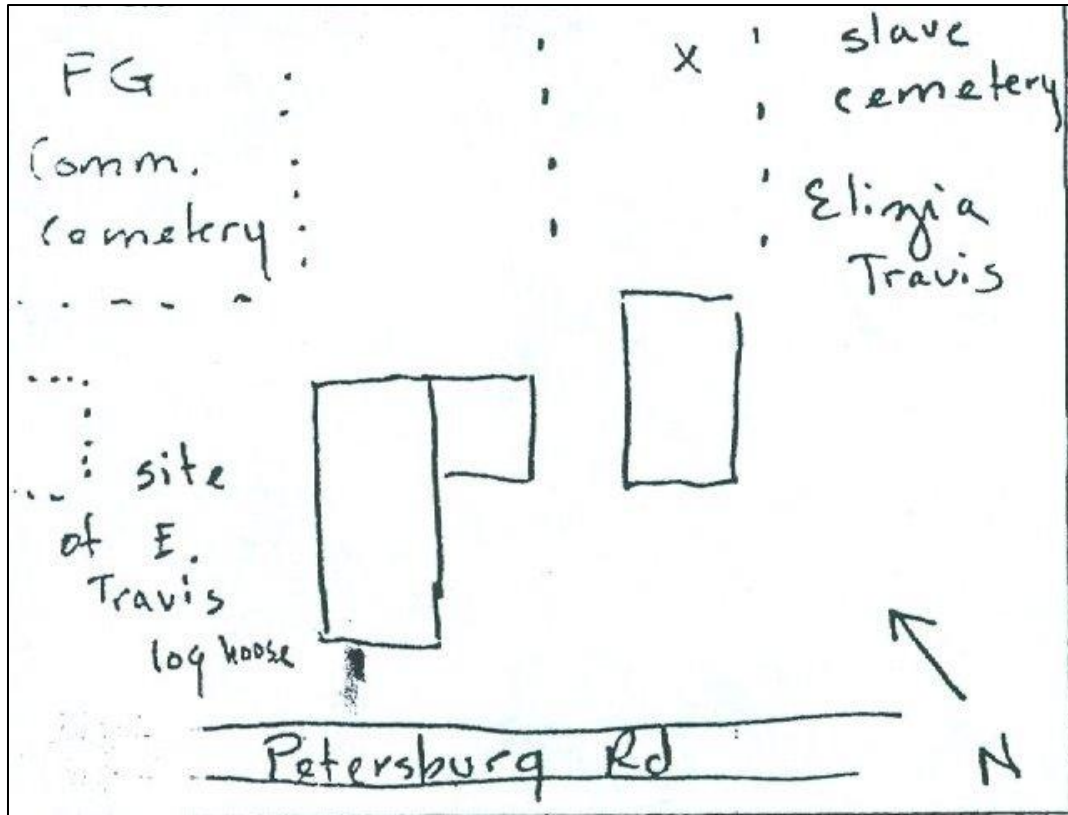 FG
Comm.
Cemetery
X
slave
cemetery
Elizjia
Travis
site
of E.
Travis
log house
Petersburg Rd
N